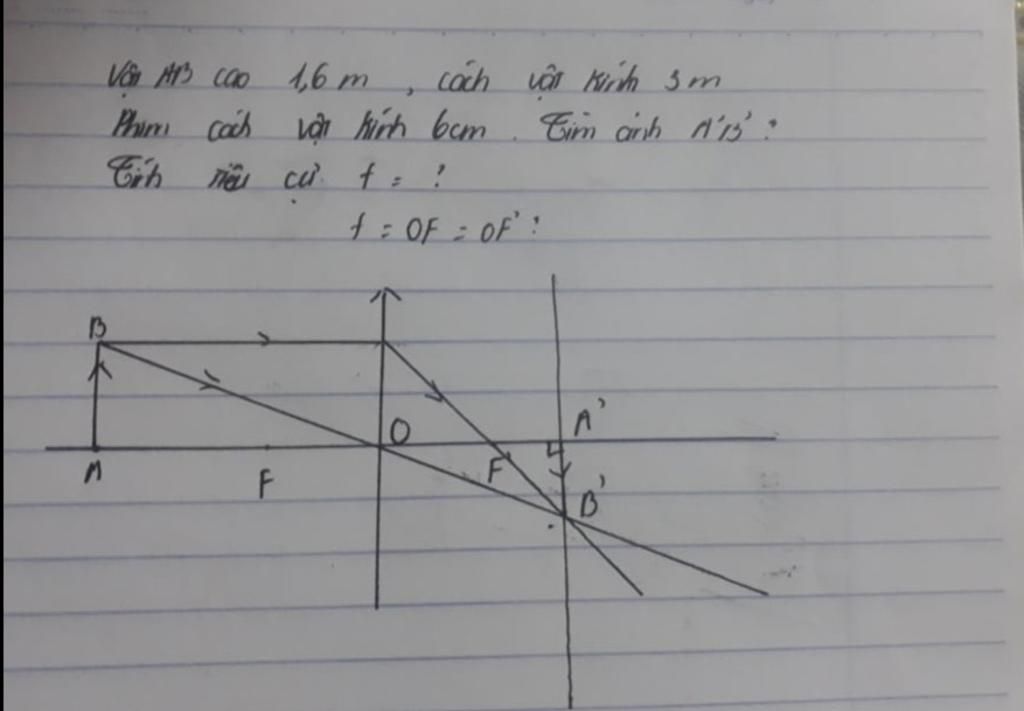 Vật AB cao 1,6 m, cách vật kính 3 m
Phim cách vật kính 6cm. Tìm ảnh A'B'?
Tính tiêu cự f = ?
f = OF = OF'?
B
A
F
O
F'
A'
B'